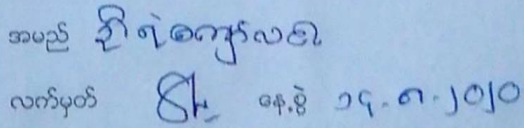 အမည် ဦးရဲကျော်လင်း
လက်မှတ် နေ့စွဲ ၁၄.၈.၂၀၂၀